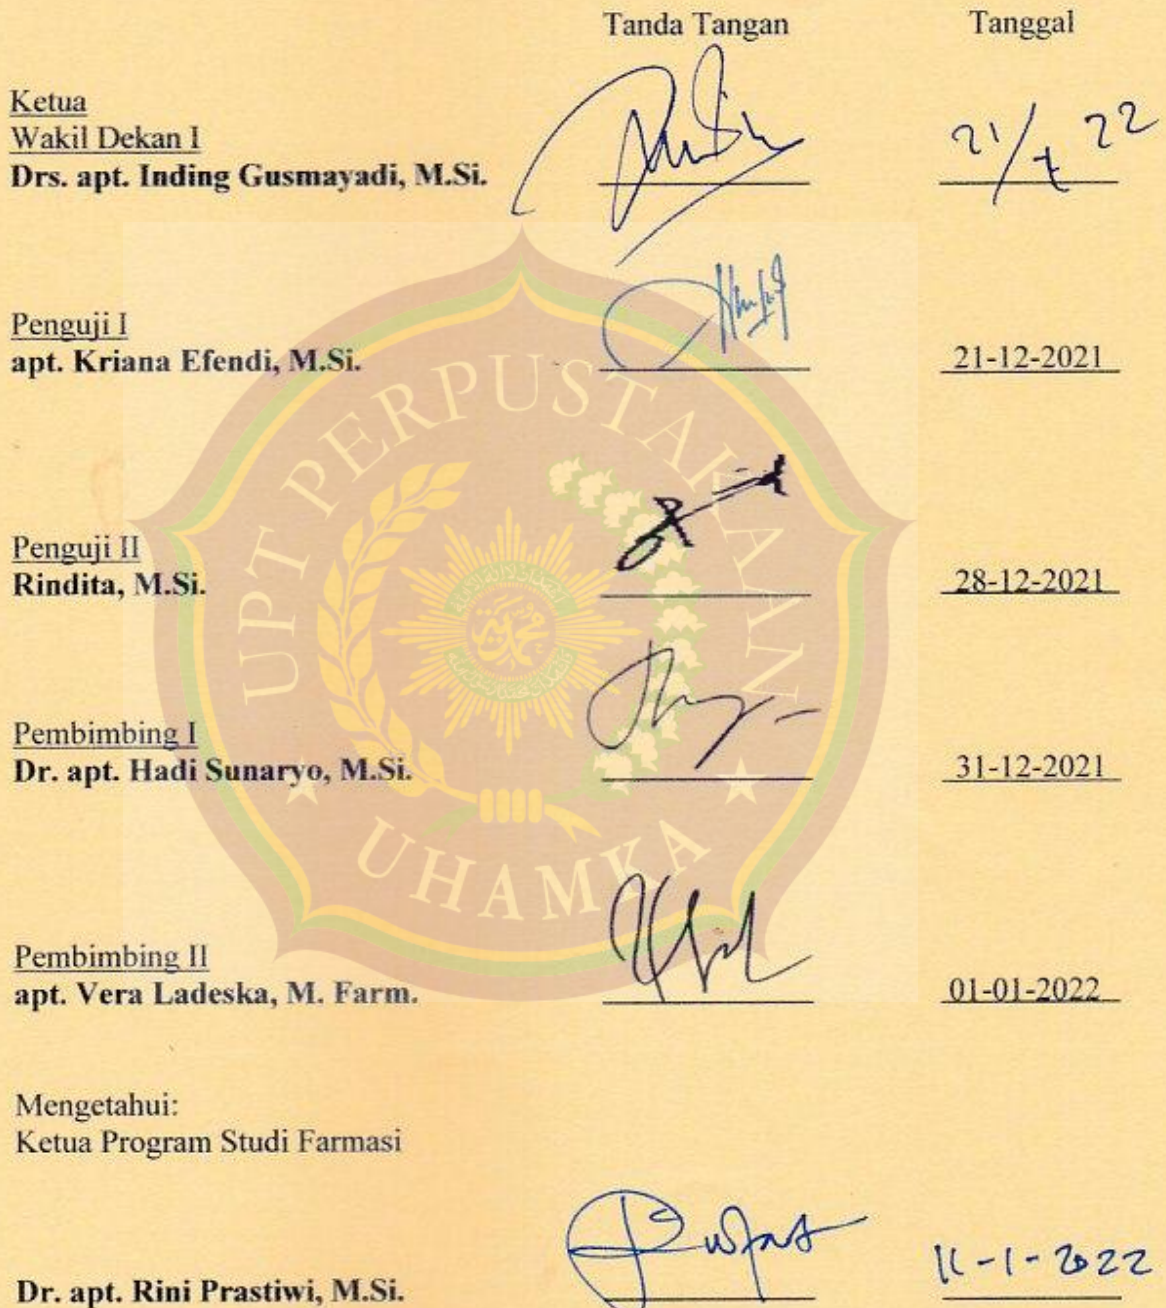 Tanda Tangan Tanggal
Ketua
Wakil Dekan I
Drs. apt. Inding Gusmayadi, M.Si. 21/ 22
Penguji I
apt. Kriana Efendi, M.Si. 21-12-2021
Penguji II
Rindita, M.Si. 28-12-2021
Pembimbing I
Dr. apt. Hadi Sunaryo, M.Si. 31-12-2021
Pembimbing II
apt. Vera Ladeska, M. Farm. 01-01-2022
Mengetahui:
Ketua Program Studi Farmasi
Dr. apt. Rini Prastiwi, M.Si. 11-1-2022
UPT PERPUSTAKAAN
UHAMKA